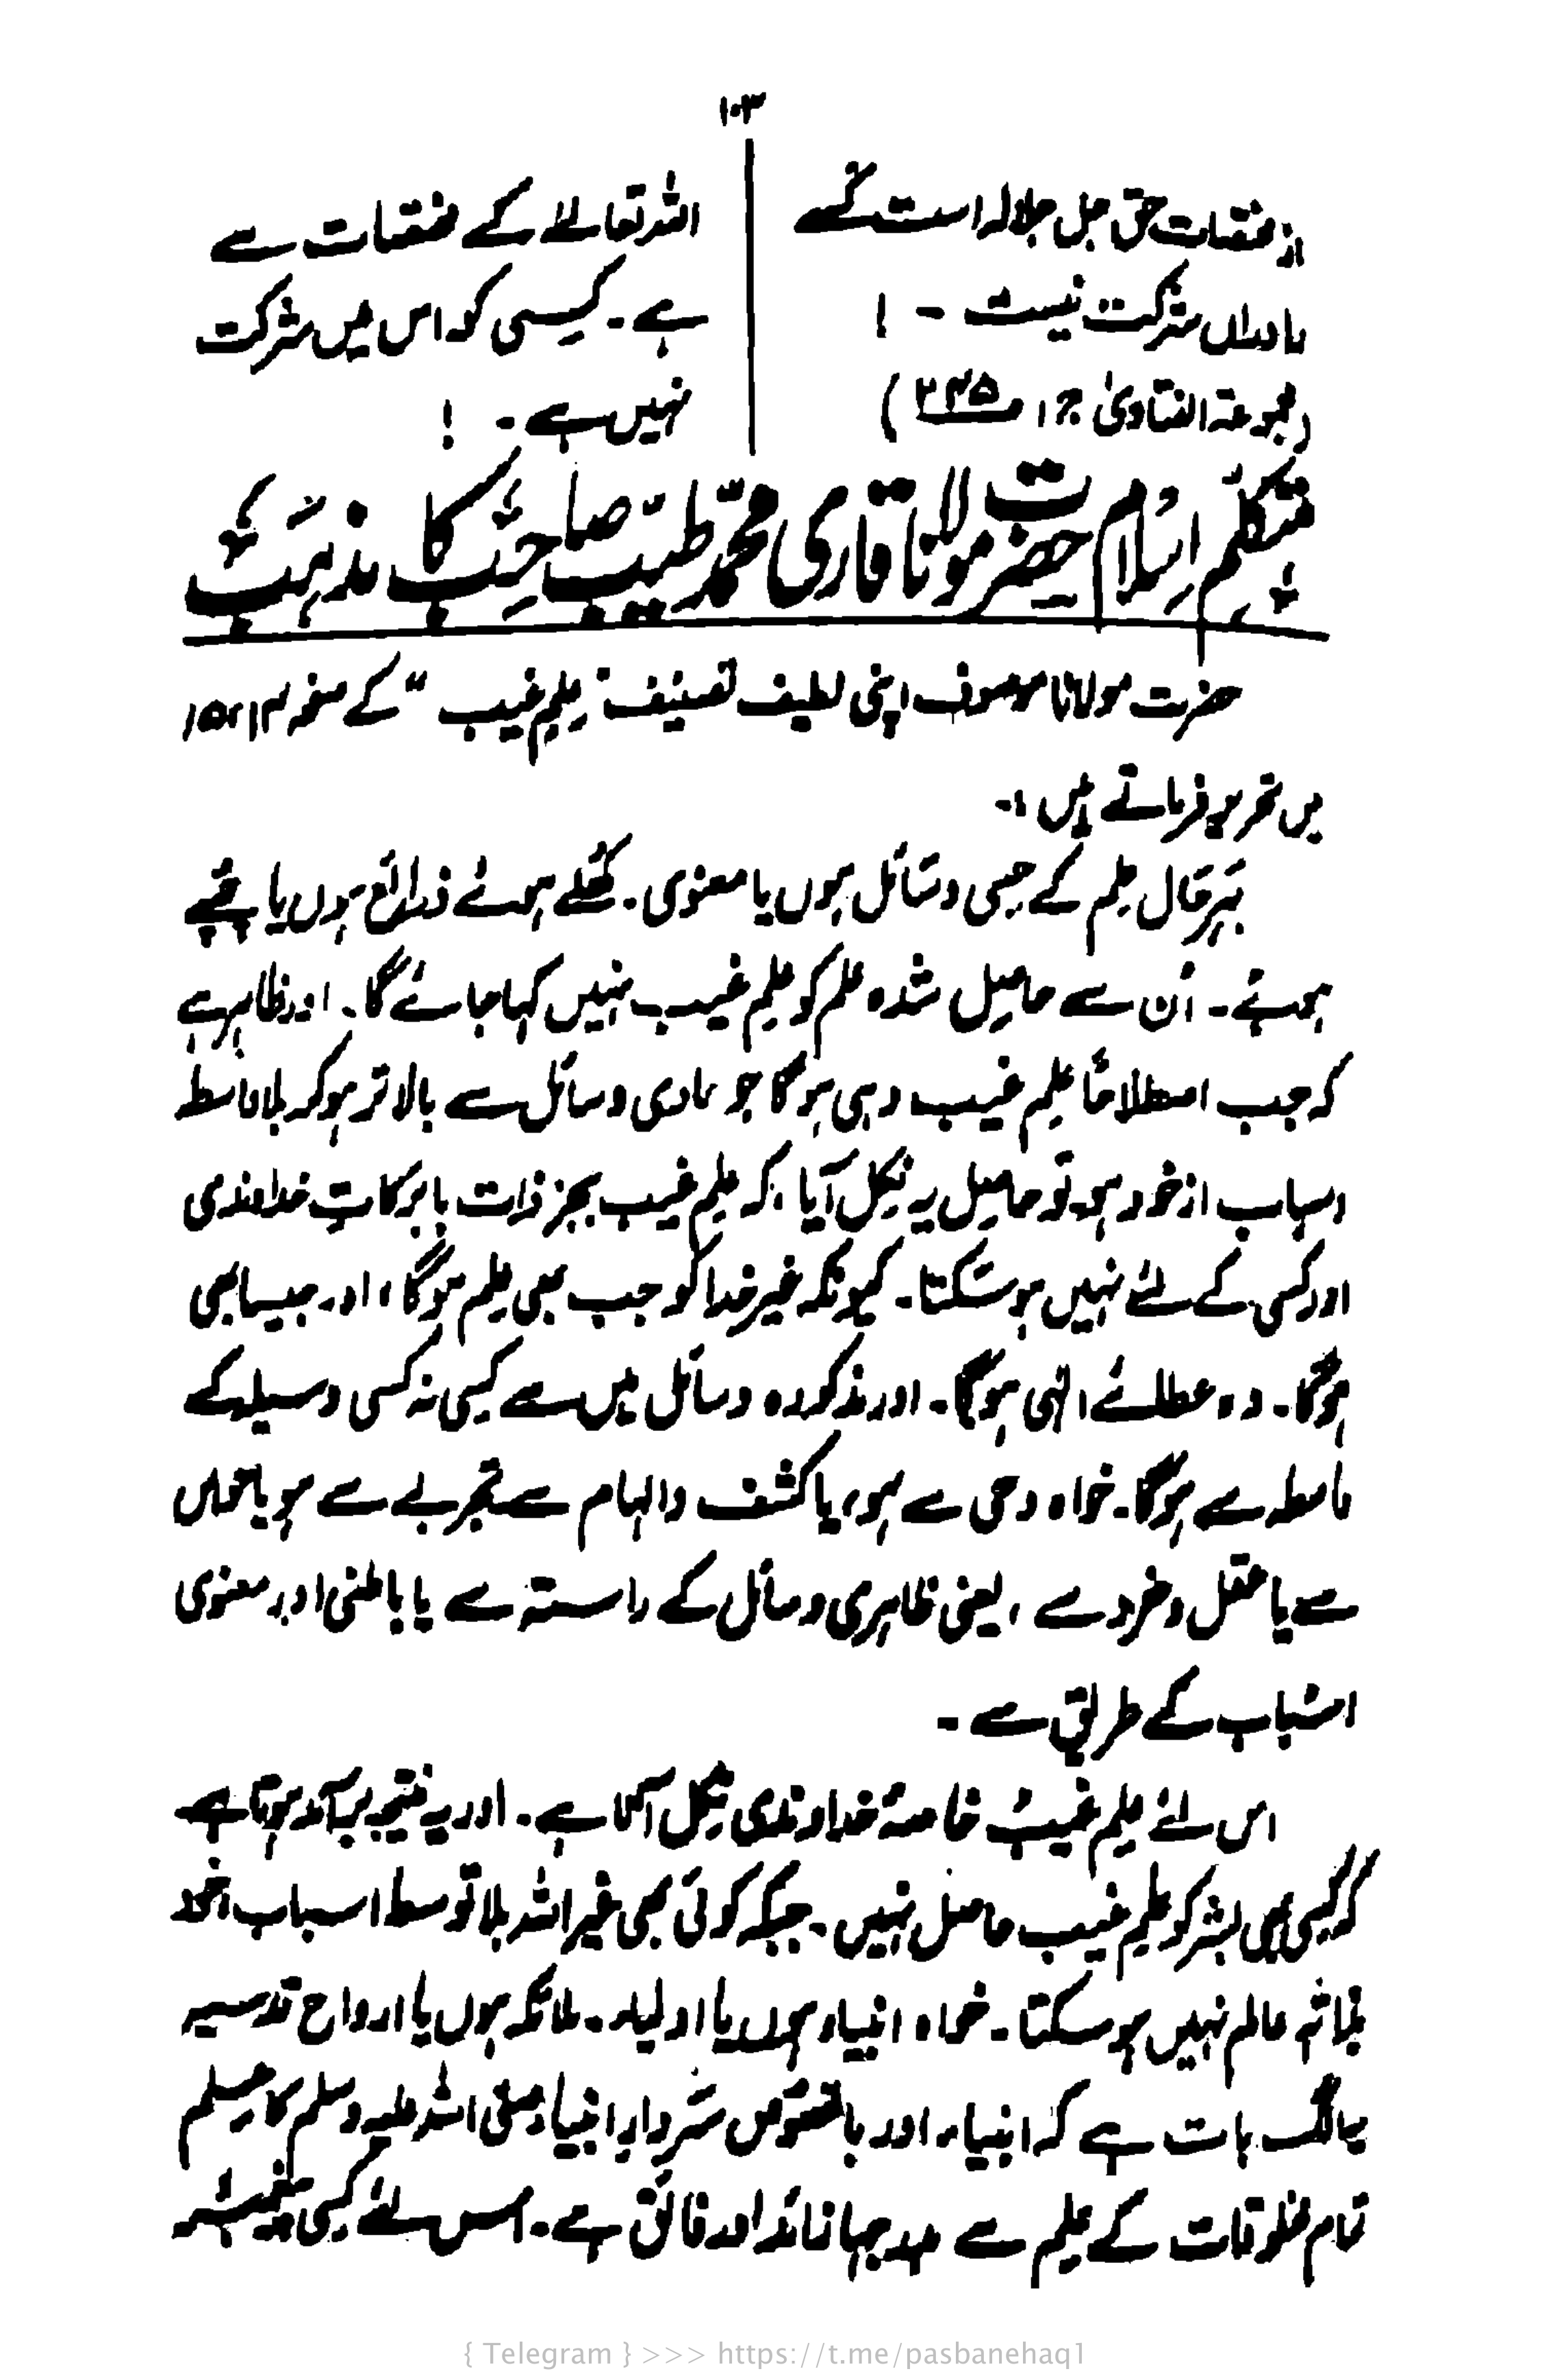 ۱۰۳
از مختصات حق جل جلالہ است کسے
را دراں شرکت نیست - !
(مجموعۃ الفتاویٰ ج ۱ ص ۳۳۵)
اللہ تعالےٰ کے مختصات سے
ہے۔ کسی کو اس میں شرکت
نہیں ہے۔ !
متکلم اسلام حضرت مولانا قاری محمد طیب صاحب کا مذہب
حضرت مولانا موصوف اپنی لطیف تصنیف "علم غیب" کے صفحہ
میں تحریر فرماتے ہیں :-
بہرحال علم کے حسی وسائل ہوں یا معنوی۔ کھلے ہوئے ذرائع ہوں یا چھپے
ہوئے۔ اُن سے حاصل شدہ علم کو علم غیب نہیں کہا جائے گا۔ اور ظاہر ہے
کہ جب اصطلاحاً علم غیب وہی ہوگا جو مادی وسائل سے بالاتر ہو کر بلا واسطہ
اسباب از خود ہو۔ تو حاصل یہ نکل آیا، کہ علم غیب بجز ذات بابرکات خداوندی
اور کسی کے لئے نہیں ہو سکتا۔ کیونکہ غیر خدا کو جب بھی علم ہوگا، اور جیسا بھی
ہوگا۔ وہ عطائے الٰہی ہوگا۔ اور مذکورہ وسائل میں سے کسی نہ کسی وسیلہ کے
واسطہ سے ہوگا۔ خواہ وحی سے ہو، یا کشف و الہام سے تجربے سے ہو یا حواس
سے یا عقل و خرد سے ، یعنی ظاہری وسائل کے راستہ سے یا باطنی اور معنوی
اسباب کے طریق سے -
اس لئے علم غیب خاصۂ خداوندی نکل آتا ہے۔ اور یہ نتیجہ برآمد ہوتا ہے
کہ کسی بھی بشر کو علم غیب حاصل نہیں۔ جبکہ کوئی بھی غیر اللہ بلا توسط اسباب از خود
بذاتہ عالم نہیں ہو سکتا۔ خواہ انبیاء ہوں یا اولیاء۔ ملائکہ ہوں یا ارواح قدسیہ
یہ الگ بات ہے کہ انبیاء اور بالخصوص سردار انبیاء صلی اللہ علیہ وسلم کا علم
تمام مخلوقات کے علم سے بدرجہا زائد اور فائق ہے۔ اس لئے کسی
{ Telegram } >>> https://t.me/pasbanehaq1